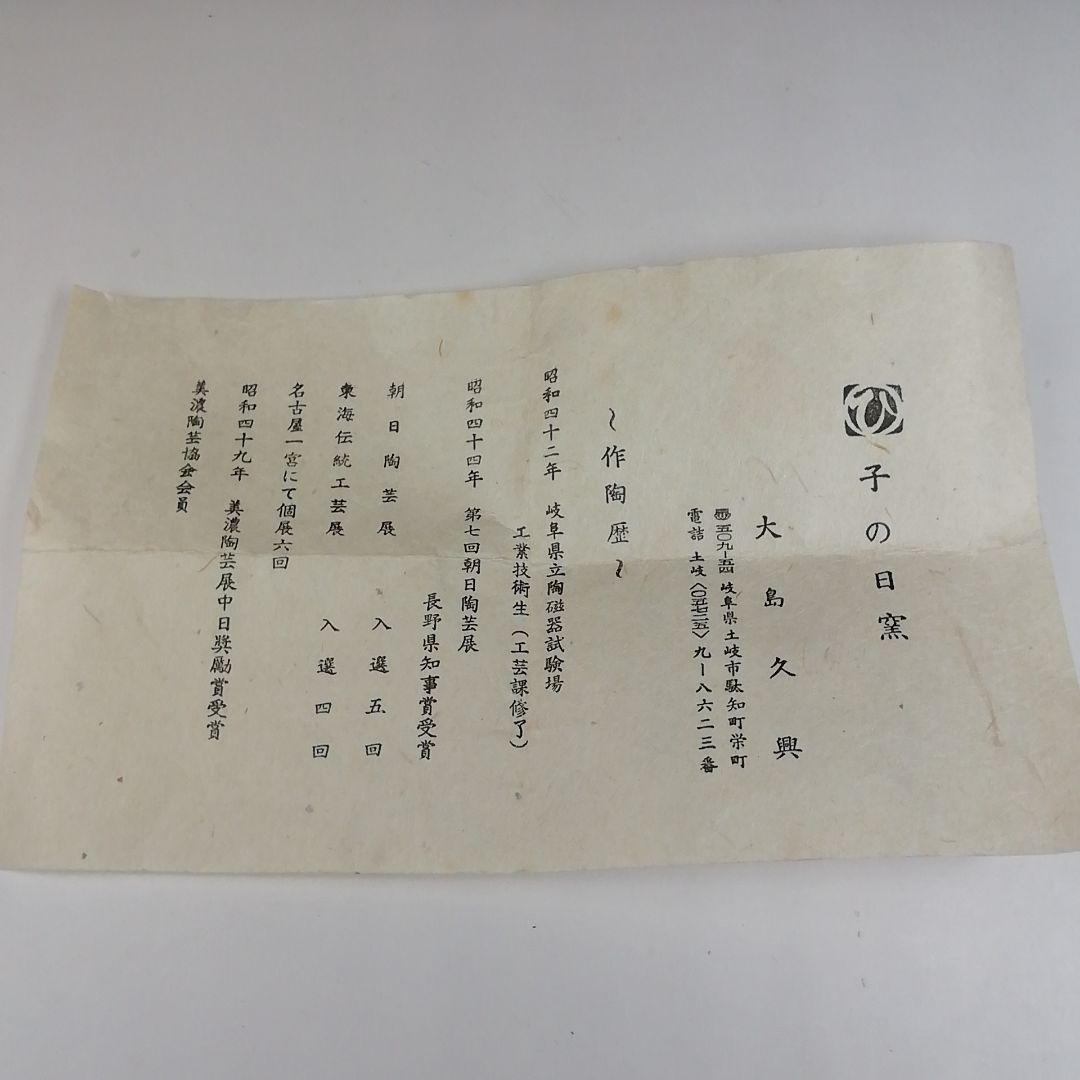 子の日窯
大島久興
〒五〇九-五四 岐阜県土岐市駄知町栄町
電話 土岐〈〇五七二五〉九-八六二三番
〜作陶歴〜
昭和四十二年 岐阜県立陶磁器試験場
工業技術生(工芸課修了)
昭和四十四年 第七回朝日陶芸展
長野県知事賞受賞
朝日陶芸展 入選五回
東海伝統工芸展 入選四回
名古屋一宮にて個展六回
昭和四十九年 美濃陶芸展中日奨励賞受賞
美濃陶芸協会会員